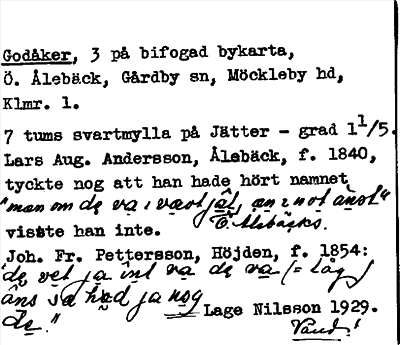 Godåker, 3 på bifogad bykarta,
Ö. Ålebäck, Gårdby sn, Möckleby hd,
Klmr. l.
7 tums svartmylla på Jätter - grad 1 1/5.
Lars Aug. Andersson, Ålebäck, f. 1840,
tyckte nog att han hade hört namnet
"man om dę va i väst jäl, än i not änst"
Ö. Ålebäcks.
visste han inte.
Joh. Fr. Pettersson, Höjden, f. 1854:
"dę vet ja int va dę va (= låg)
äns ja hæd ja nog
Lage Nilsson 1929.
Vänd!